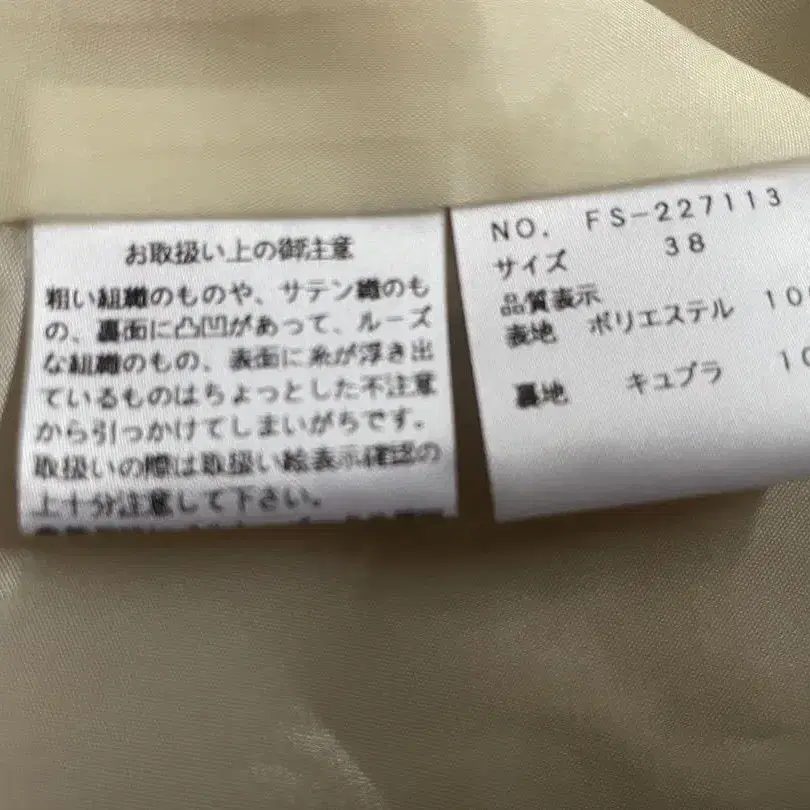 お取扱い上の御注意
粗い組織のものや、サテン織のも
の、裏面に凸凹があって、ルーズ
な組織のもの、表面に糸が浮き出
ているものはちょっとした不注意
から引っかけてしまいがちです。
取扱いの際は取扱い絵表示確認の
上十分注意して下さい。
NO. FS-227113
サイズ 38
品質表示
表地 ポリエステル 10
裏地 キュプラ 10